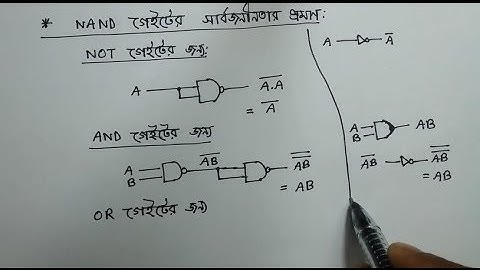 * NAND গেইটের সার্বজনীনতার প্রমান:
NOT গেইটের জন্য:
A A̅.̅A̅
= A̅
AND গেইটের জন্য
A
B A̅B̅ A̿B̿
= AB
OR গেইটের জন্য
A A̅
A
B AB
A̅B̅ A̿B̿
= AB